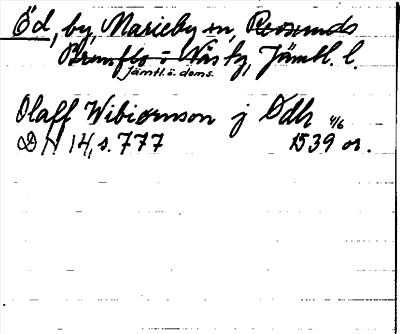 Öd, by, Marieby sn, Revsunds
Brunflo o Näs tg, Jämtl. l.
Jämtl. ö. doms.
Olaff Wibiornson j Ödh 4/6
DN 14, s. 777 1539 or.